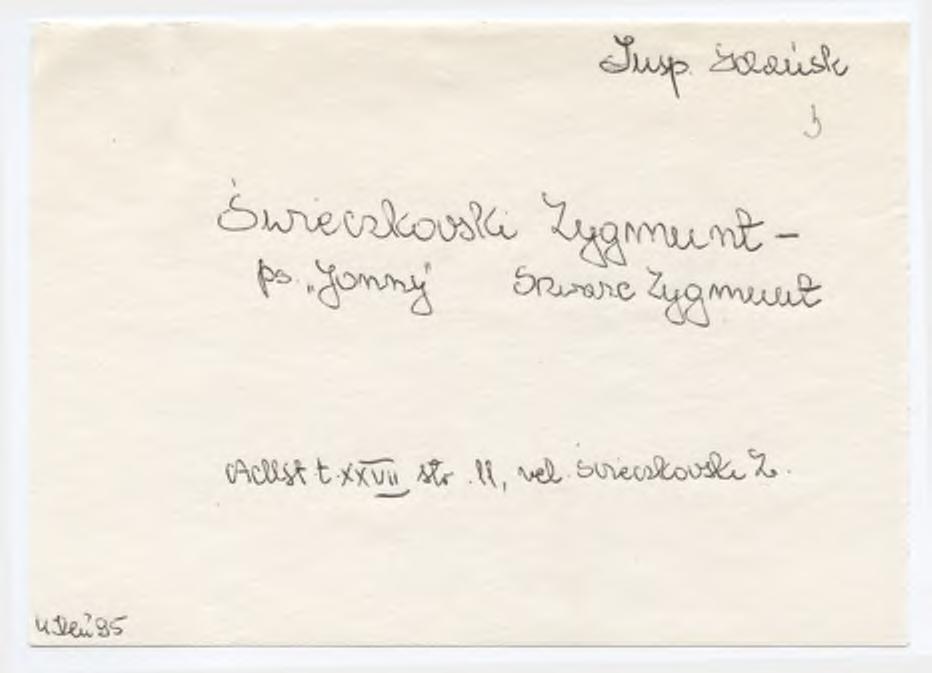 Insp. Gdańsk
Świeczkowski Zygmunt –
ps. „Jonny" Szwarc Zygmunt
t. XXVII str. 11, rel. Świeczkowski Z.
95